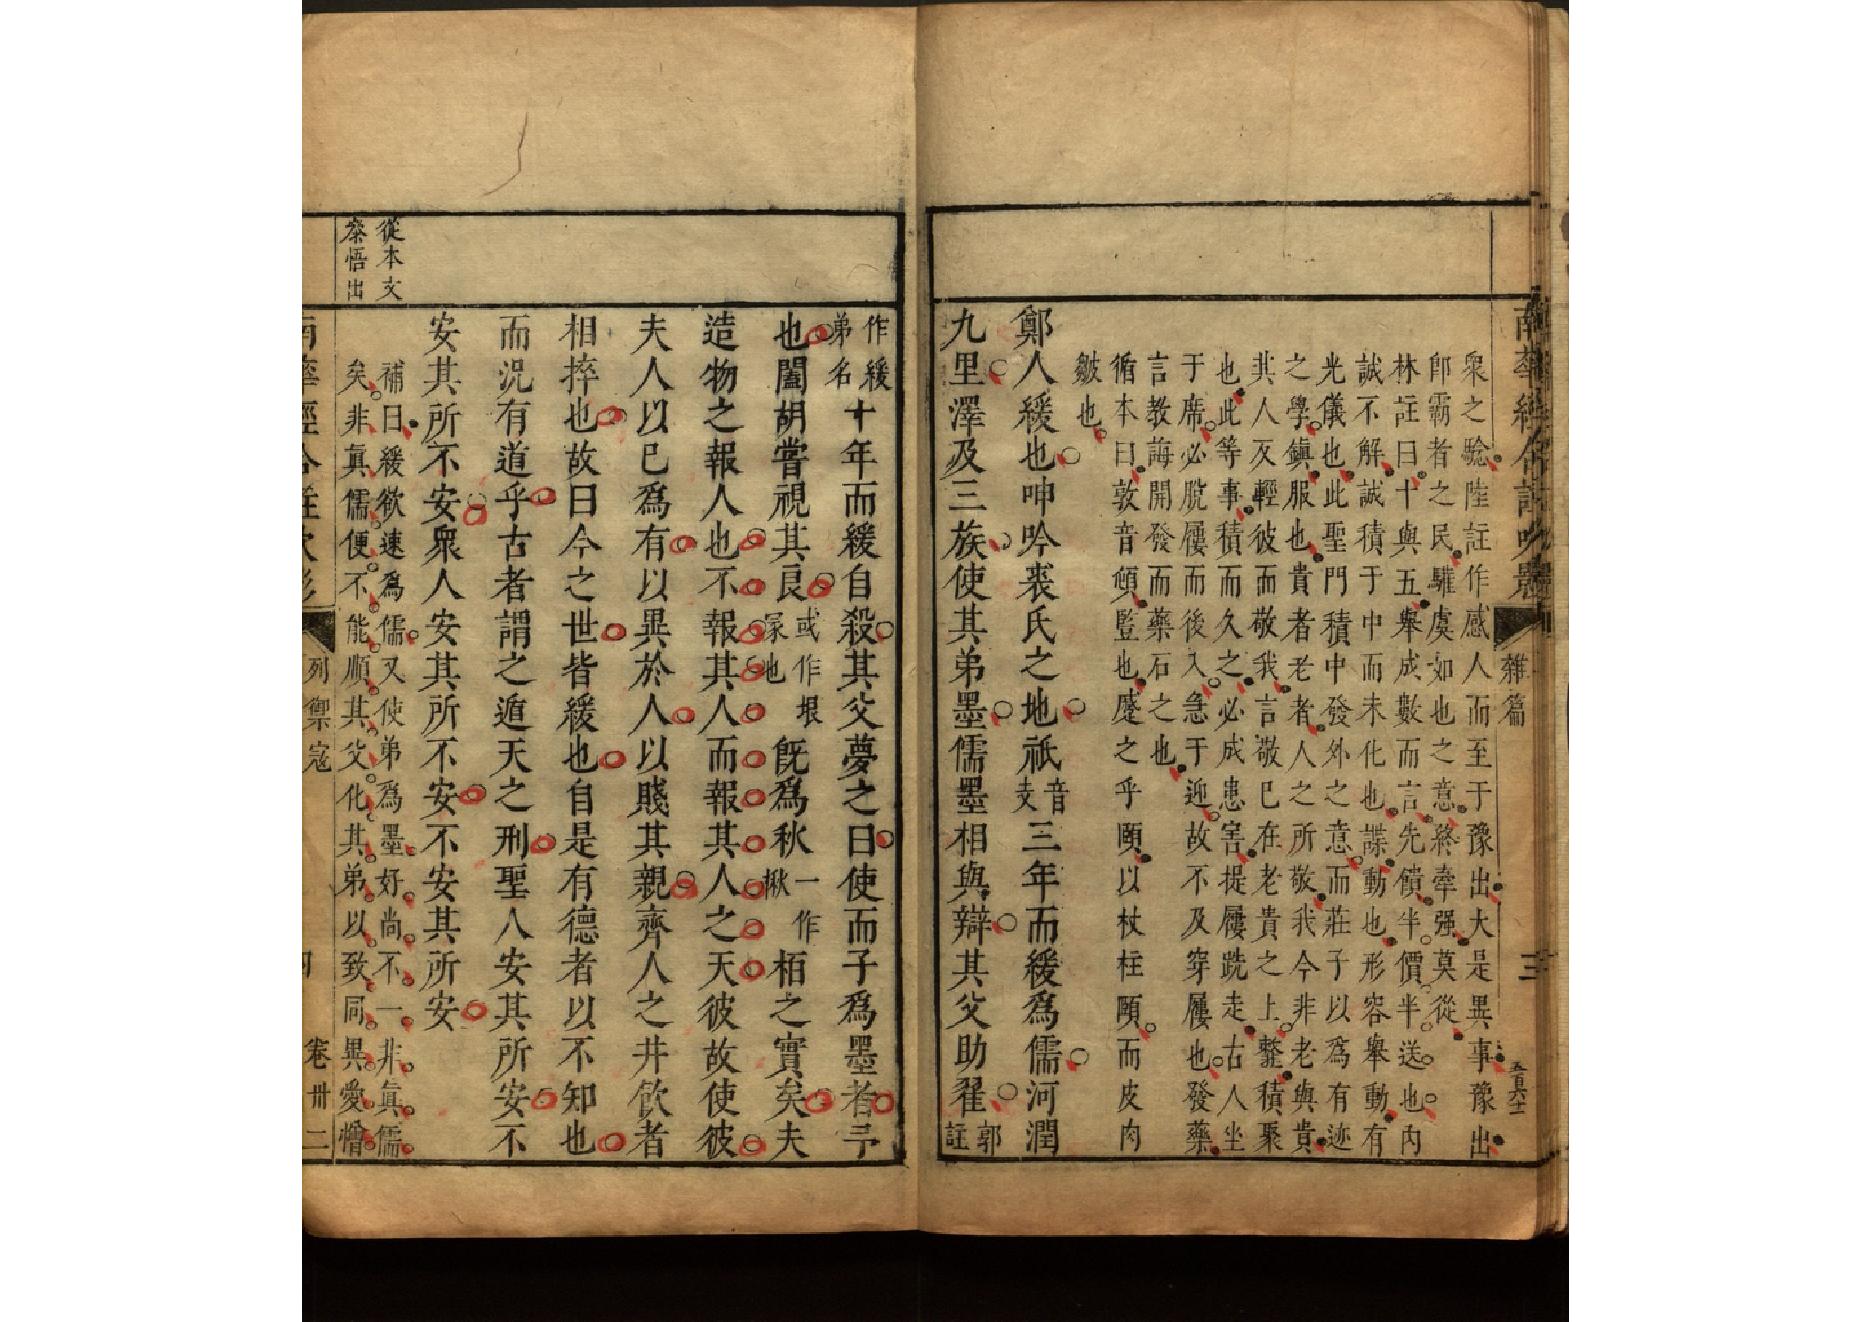 雜篇
三
衆之驗陸註作感人而至于豫出大是異事豫出
郎霸者之民驩虞如也之意終牽强莫從
林註曰十與五舉成數而言先饋半價半送也內
誠不解誠積于中而未化也諜動也形容舉動有
光儀也此聖門積中發外之意而莊子以爲有迹
之學鎮服也貴者老者人之所敬我今非老與貴
其人反輕彼而敬我言敬已在老貴之上䪠積聚
也此等事積而久之必成患害提屨跣走古人坐
于席必脫屨而後入急于迎故不及穿屨也發藥
言教誨開發而藥石之也
循本曰敦音頓豎也蹙之乎頤以杖柱頤而皮肉
皺也
鄭人緩也呻吟裘氏之地祇音支三年而緩爲儒河潤
九里澤及三族使其弟墨儒墨相與辯其父助翟郭註
作緩弟名十年而緩自殺其父夢之曰使而子爲墨者予
也闔胡嘗視其良或作垠冢也旣爲秋一作楸栢之實矣夫
造物之報人也不報其人而報其人之天彼故使彼
夫人以已爲有以異於人以賤其親齊人之井飮者
相捽也故曰今之世皆緩也自是有德者以不知也
而況有道乎古者謂之遁天之刑聖人安其所安不
安其所不安衆人安其所不安不安其所安
從本文
叅悟出
補曰緩欲速爲儒又使弟爲墨好尚不一非眞儒
矣非眞儒便不能順其父化其弟以致同異愛憎
列禦寇
卷卅二